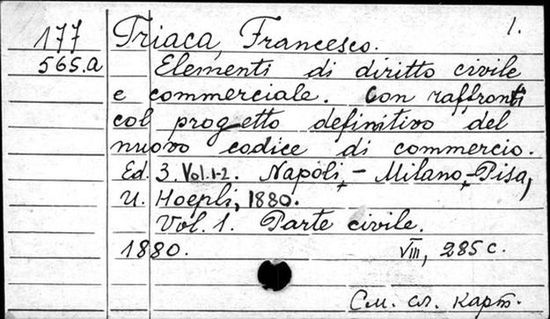 1.
177 Triaca, Francesco.
565.a Elementi di diritto civile
e commerciale. Con raffronti
col progetto definitivo del
nuovo codice di commercio.
Ed. 3. Vol. 1-2. Napoli, - Milano, - Pisa,
U. Hoepli, 1880.
Vol. 1. Parte civile.
1880. VIII, 285 с.
См. сл. карт.